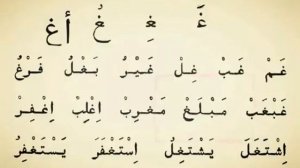 غَ غِ غُ أغ
غَمْ غَبْ غِلْ غَيْرُ بَغْلُ فَرْغُ
غَبْغَبْ مَبْلَغْ مَغْرِبْ اِغْلِبْ اِغْفِرْ
اِشْتَغَلَ يَشْتَغِلُ اِسْتَغْفَرَ يَسْتَغْفِرُ